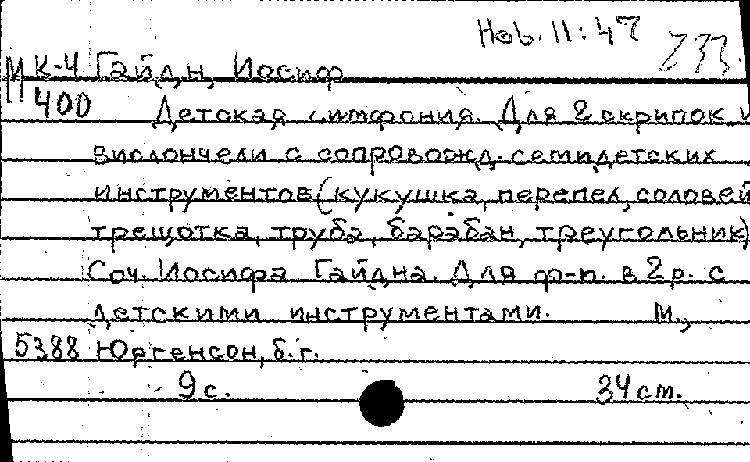 Нов. 11:47 233.
МК-4 Гайдн, Иосиф
400 Детская симфония. Для 2 скрипок и
виолончели с сопровожд. семи детских
инструментов (кукушка, перепел, соловей
трещотка, труба, барабан, треугольник)
Соч. Иосифа Гайдна. Для ф-п. в 2 р. с
детскими инструментами. М.,
5388 Юргенсон, б.г.
9 с. 34 см.